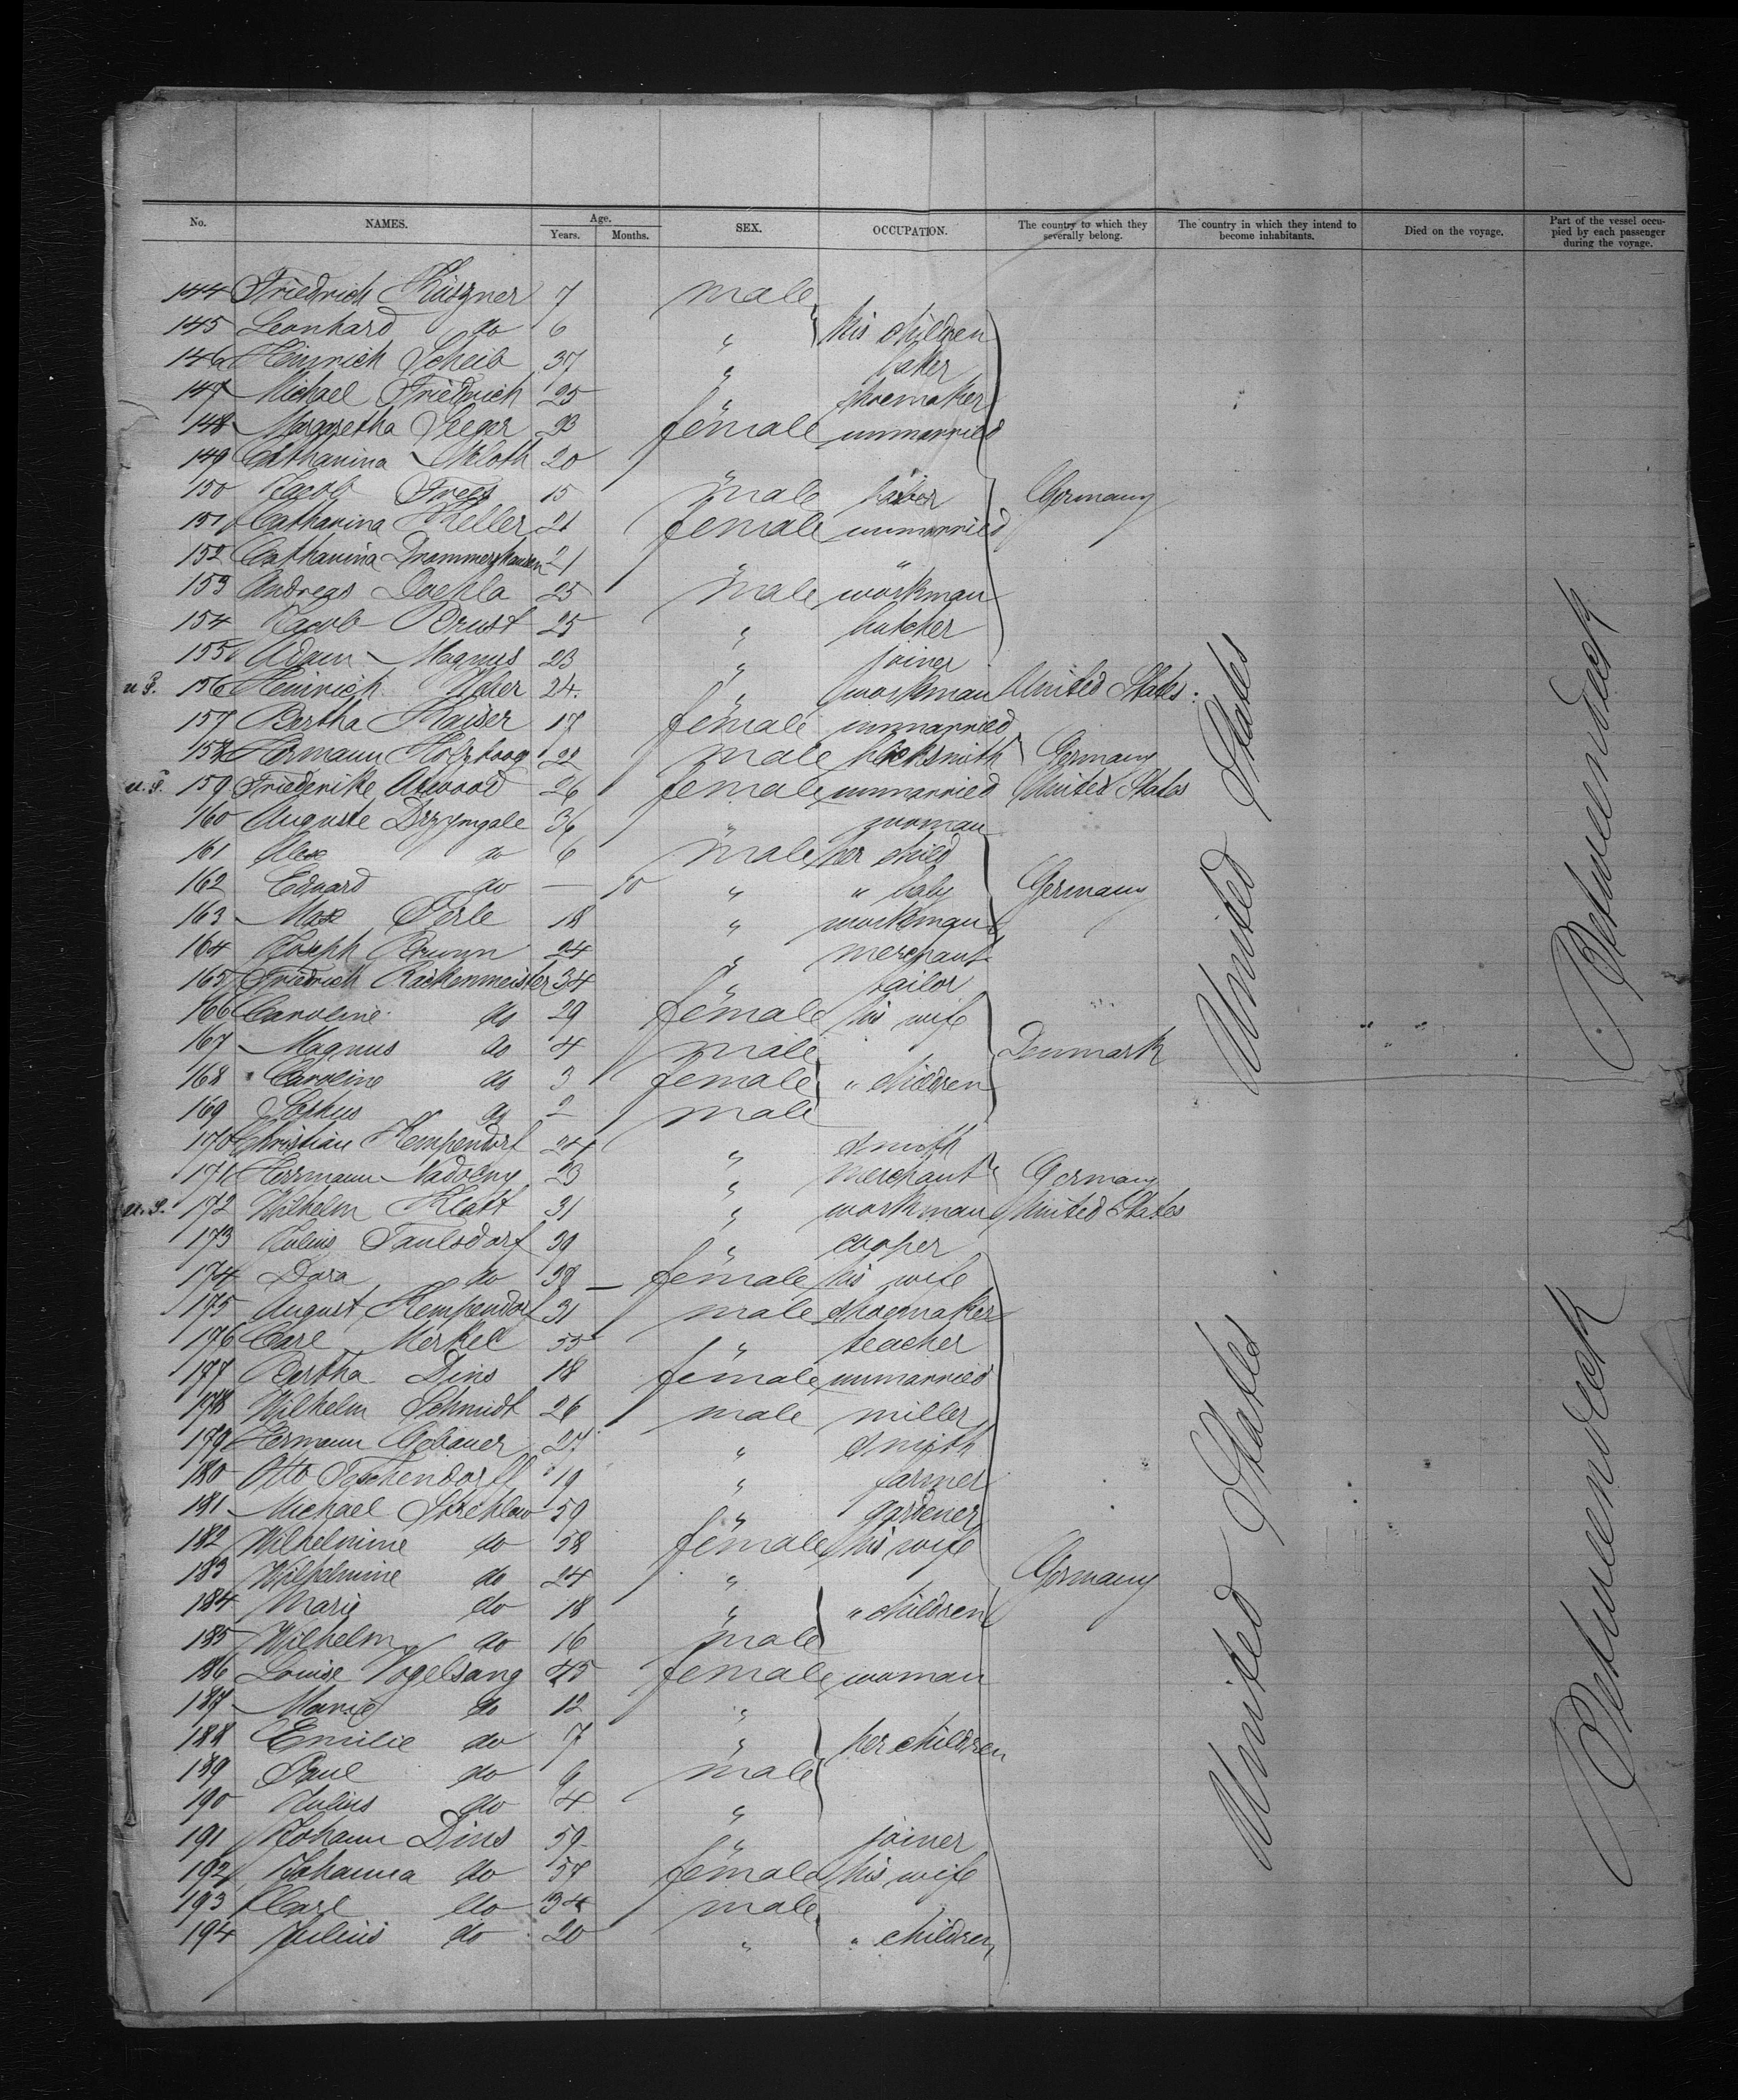 No. NAMES. Age. Years. Months. SEX. OCCUPATION. The country to which they severally belong. The country in which they intend to become inhabitants. Died on the voyage. Part of the vessel occupied by each passenger during the voyage.
144 Friedrich 7 male
145 Leonhard do 6 " his children
146 Heinrich Scheib 37 " baker
147 Michael Friedrich 25 " shoemaker
148 Margaretha Seeger 23 female unmarried
149 Catharina 20 "
150 Jacob 15 male Germany
151 Catharina Keller 21 female unmarried
152 Catharina 21 " "
153 Andreas 25 male workman
154 Jacob Brust 25 " butcher
155 Adam Magnus 23 " joiner
156 Heinrich 24 " workman United States
157 Bertha Kaiser 17 female unmarried
158 Hermann 22 male blacksmith Germany
159 Friederike Atwood 26 female unmarried United States
160 Auguste 36 " woman
161 Alex do 6 male her child
162 Eduard do — 10 " " baby Germany
163 Max Perle 18 " workman
164 Joseph 24 " merchant
165 Friedrich Rackenmeister 34 " tailor
166 Caroline do 29 female his wife
167 Magnus do 4 male Denmark
168 Caroline do 3 female " children
169 do 2 male
170 Christian Kempendorf 24 " smith
171 Herrmann Nadolny 23 " merchant Germany
172 Wilhelm Klatt 31 " workman United States
173 Julius 39 " cooper
174 Dora do 38 female his wife
175 August Kempendorf 31 male shoemaker
176 Carl Merkel 55 " teacher
177 Bertha Dins 18 female unmarried
178 Wilhelm Schmidt 26 male miller
179 Hermann Gebauer 27 " smith
180 Otto 19 " farmer
181 Michael Strehlow 59 " gardener
182 Wilhelmine do 58 female his wife
183 Wilhelmine do 24 " Germany
184 Marie do 18 " " children
185 Wilhelm do 16 male
186 Louise Vogelsang 45 female woman
187 Marie do 12 "
188 Emilie do 7 " her children
189 Paul do 9 male
190 Julius do 4 "
191 Johann Dins 59 " joiner
192 Johanna do 57 female his wife
193 Carl do 34 male
194 Julius do 20 " " children
United States
Betweendeck
United States
Betweendeck